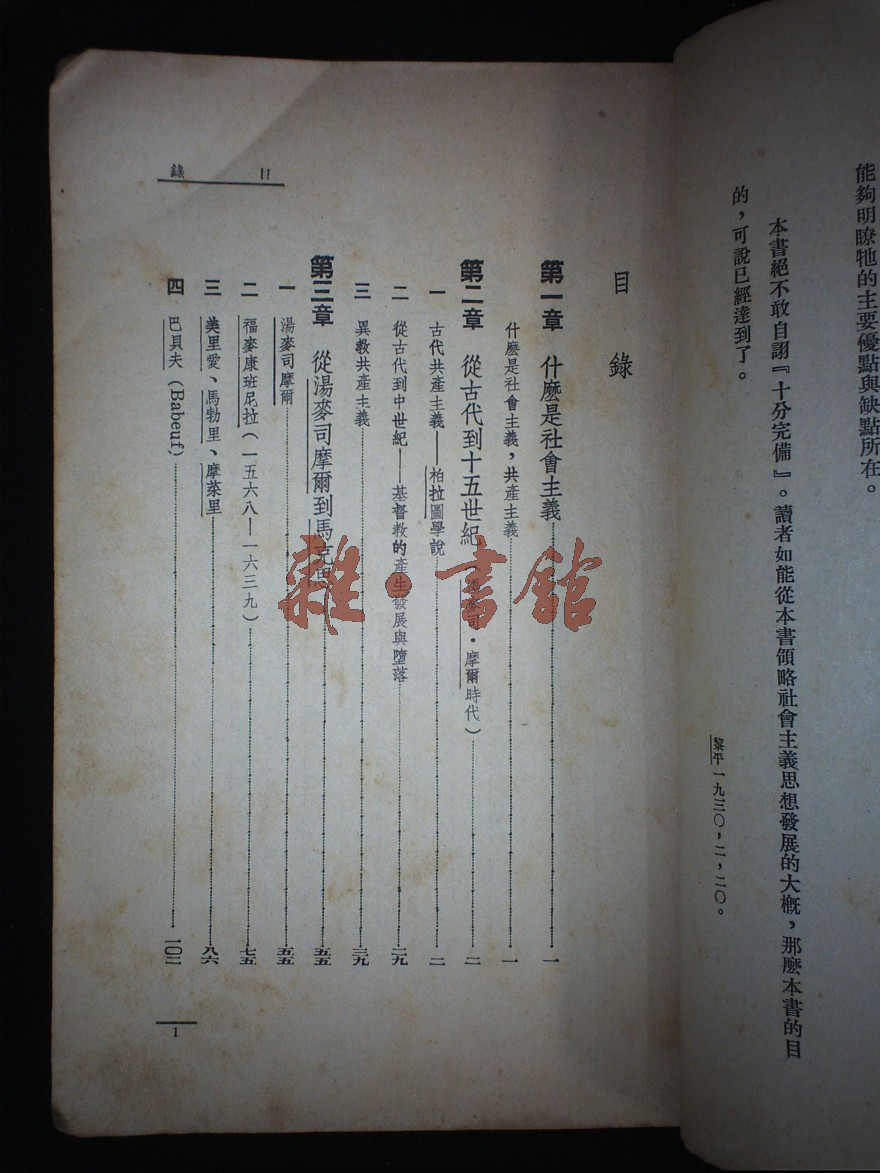 能夠明瞭牠的主要優點與缺點所在。
本書絕不敢自詡『十分完備』。讀者如能從本書領略社會主義思想發展的大概,那麽本書的目
的,可說已經達到了。
黎平一九三〇,二,二〇。
目錄
目錄
第一章 什麽是社會主義 一
什麽是社會主義,共產主義 一
第二章 從古代到十五世紀(湯麥司·摩爾時代) 二
一 古代共產主義——柏拉圖學說 二
二 從古代到中世紀——基督教的產生發展與墮落 二九
三 異教共產主義 三九
第三章 從湯麥司摩爾到馬克思 五五
一 湯麥司摩爾 五五
二 福麥康班尼拉(一五六八—一六三九) 七五
三 美里愛、馬勃里、摩萊里 八六
四 巴貝夫(Babeuf) 一〇二
1
雜·書館